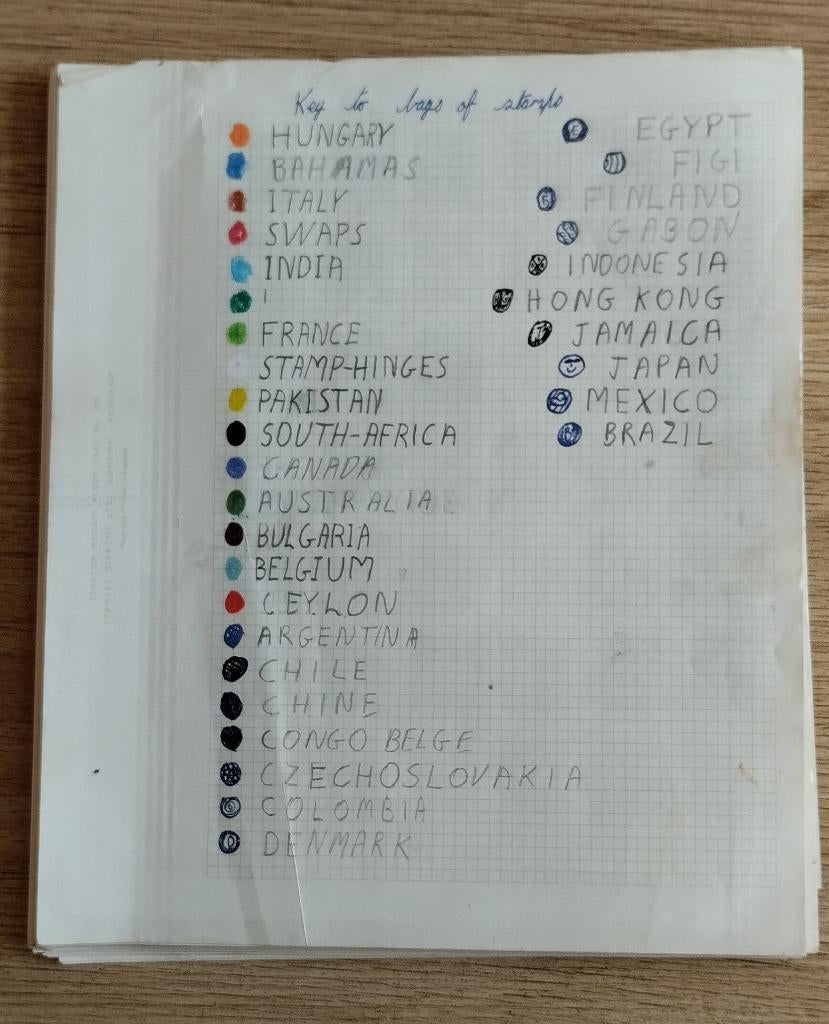 Key to bags of stamps
HUNGARY
BAHAMAS
ITALY
SWAPS
INDIA
FRANCE
STAMP-HINGES
PAKISTAN
SOUTH-AFRICA
CANADA
AUSTRALIA
BULGARIA
BELGIUM
CEYLON
ARGENTINA
CHILE
CHINE
CONGO BELGE
CZECHOSLOVAKIA
COLOMBIA
D DENMARK
E EGYPT
FIGI
FINLAND
GABON
INDONESIA
HONG KONG
JAMAICA
JAPAN
MEXICO
BRAZIL